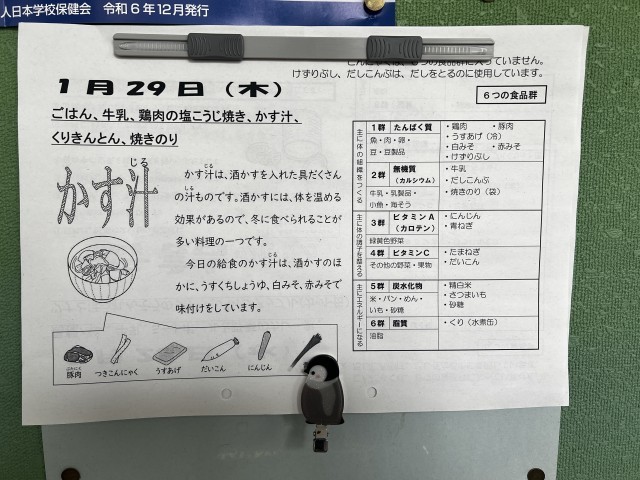 人日本学校保健会　令和6年12月発行
けずりぶし、だしこんぶは、だしをとるのに使用しています。
1月29日（木）
ごはん、牛乳、鶏肉の塩こうじ焼き、かす汁、
くりきんとん、焼きのり
かす汁
じる
かす汁は、酒かすを入れた具だくさん
の汁ものです。酒かすには、体を温める
効果があるので、冬に食べられることが
多い料理の一つです。
今日の給食のかす汁は、酒かすのほ
かに、うすくちしょうゆ、白みそ、赤みそで
味付けをしています。
豚肉
ぶたにく
つきこんにゃく
うすあげ
だいこん
にんじん
6つの食品群
主に体の組織をつくる
1群 たんぱく質
魚・肉・卵・
豆・豆製品
・鶏肉　・豚肉
・うすあげ（冷）
・白みそ　・赤みそ
・けずりぶし
2群 無機質
（カルシウム）
牛乳・乳製品・
小魚・海そう
・牛乳
・だしこんぶ
・焼きのり（袋）
主に体の調子を整える
3群 ビタミンA
（カロテン）
緑黄色野菜
・にんじん
・青ねぎ
4群 ビタミンC
その他の野菜・果物
・たまねぎ
・だいこん
主にエネルギーになる
5群 炭水化物
米・パン・めん・
いも・砂糖
・精白米
・さつまいも
・砂糖
6群 脂質
油脂
・くり（水煮缶）